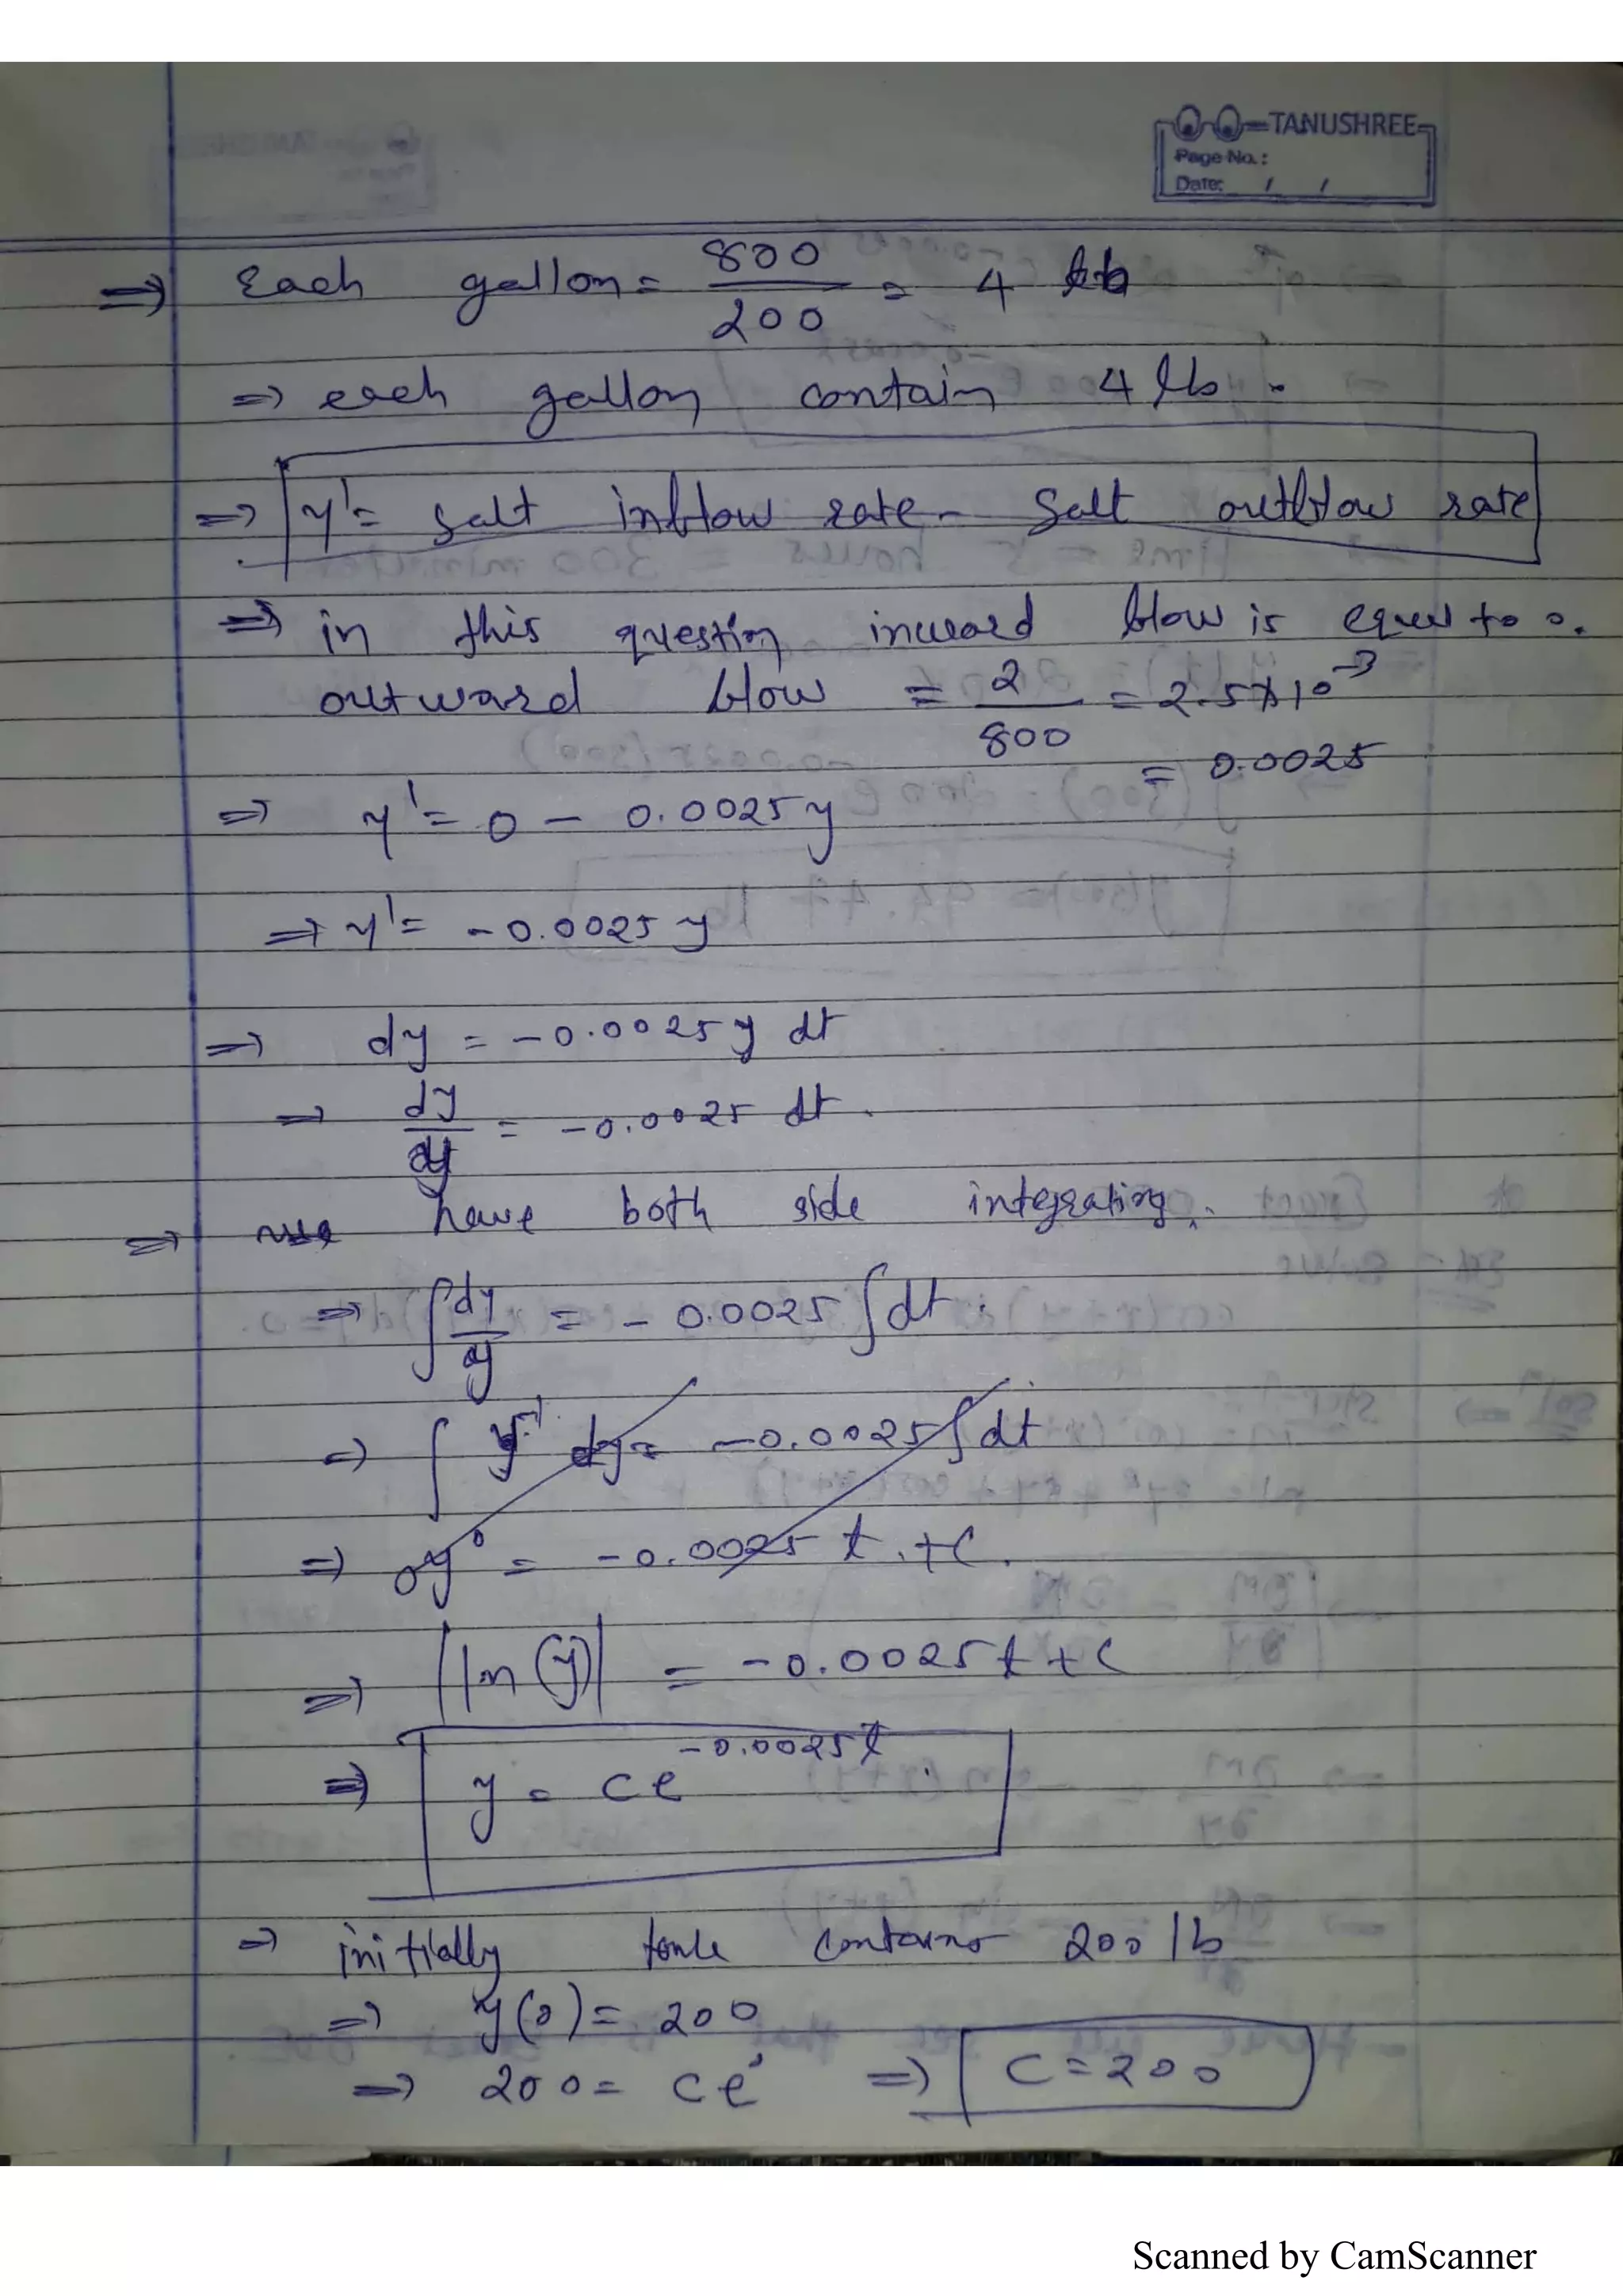 TANUSHREE
Page No.:
Date: / /
⇒ Each gallon = 800/200 = 4 lb
⇒ each gallon contain 4 lb.
⇒ y' = salt inflow rate - Salt outflow rate
⇒ in this question inward flow is equal to 0.
outward flow = 2/800 = 2.5×10⁻³
= 0.0025
⇒ y' = 0 - 0.0025y
⇒ y' = -0.0025y
⇒ dy = -0.0025y dt
⇒ dy/y = -0.0025 dt.
⇒ have both side integrating.
⇒ ∫dy/y = -0.0025∫dt.
⇒ ∫ y⁻¹ dy = -0.0025∫dt
⇒ 0y⁰ = -0.0025 t. + C.
⇒ |ln(y)| = -0.0025t + C
⇒ y = Ce^-0.0025t.
⇒ initially tank contains 200 lb
⇒ y(0) = 200
⇒ 200 = Ce° ⇒ C = 200
Scanned by CamScanner